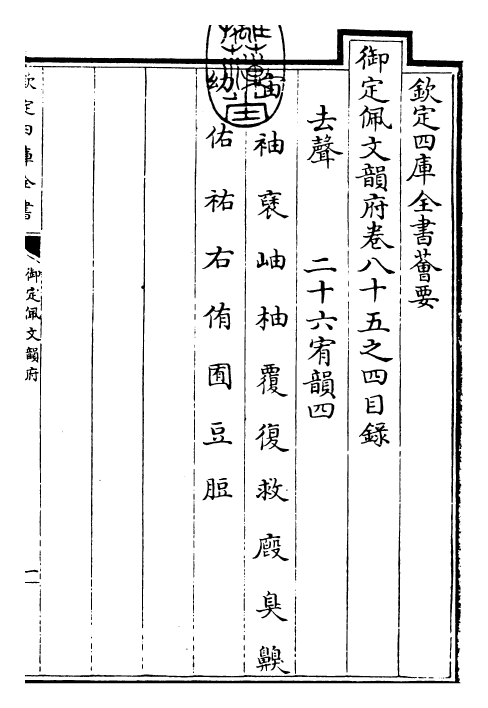 欽定四庫全書薈要
御定佩文韻府卷八十五之四目錄
去聲 二十六宥韻四
宙袖褎岫柚覆復救廏臭齅
幼佑祐右侑囿豆脰
欽定四庫全書
御定佩文韻府
一